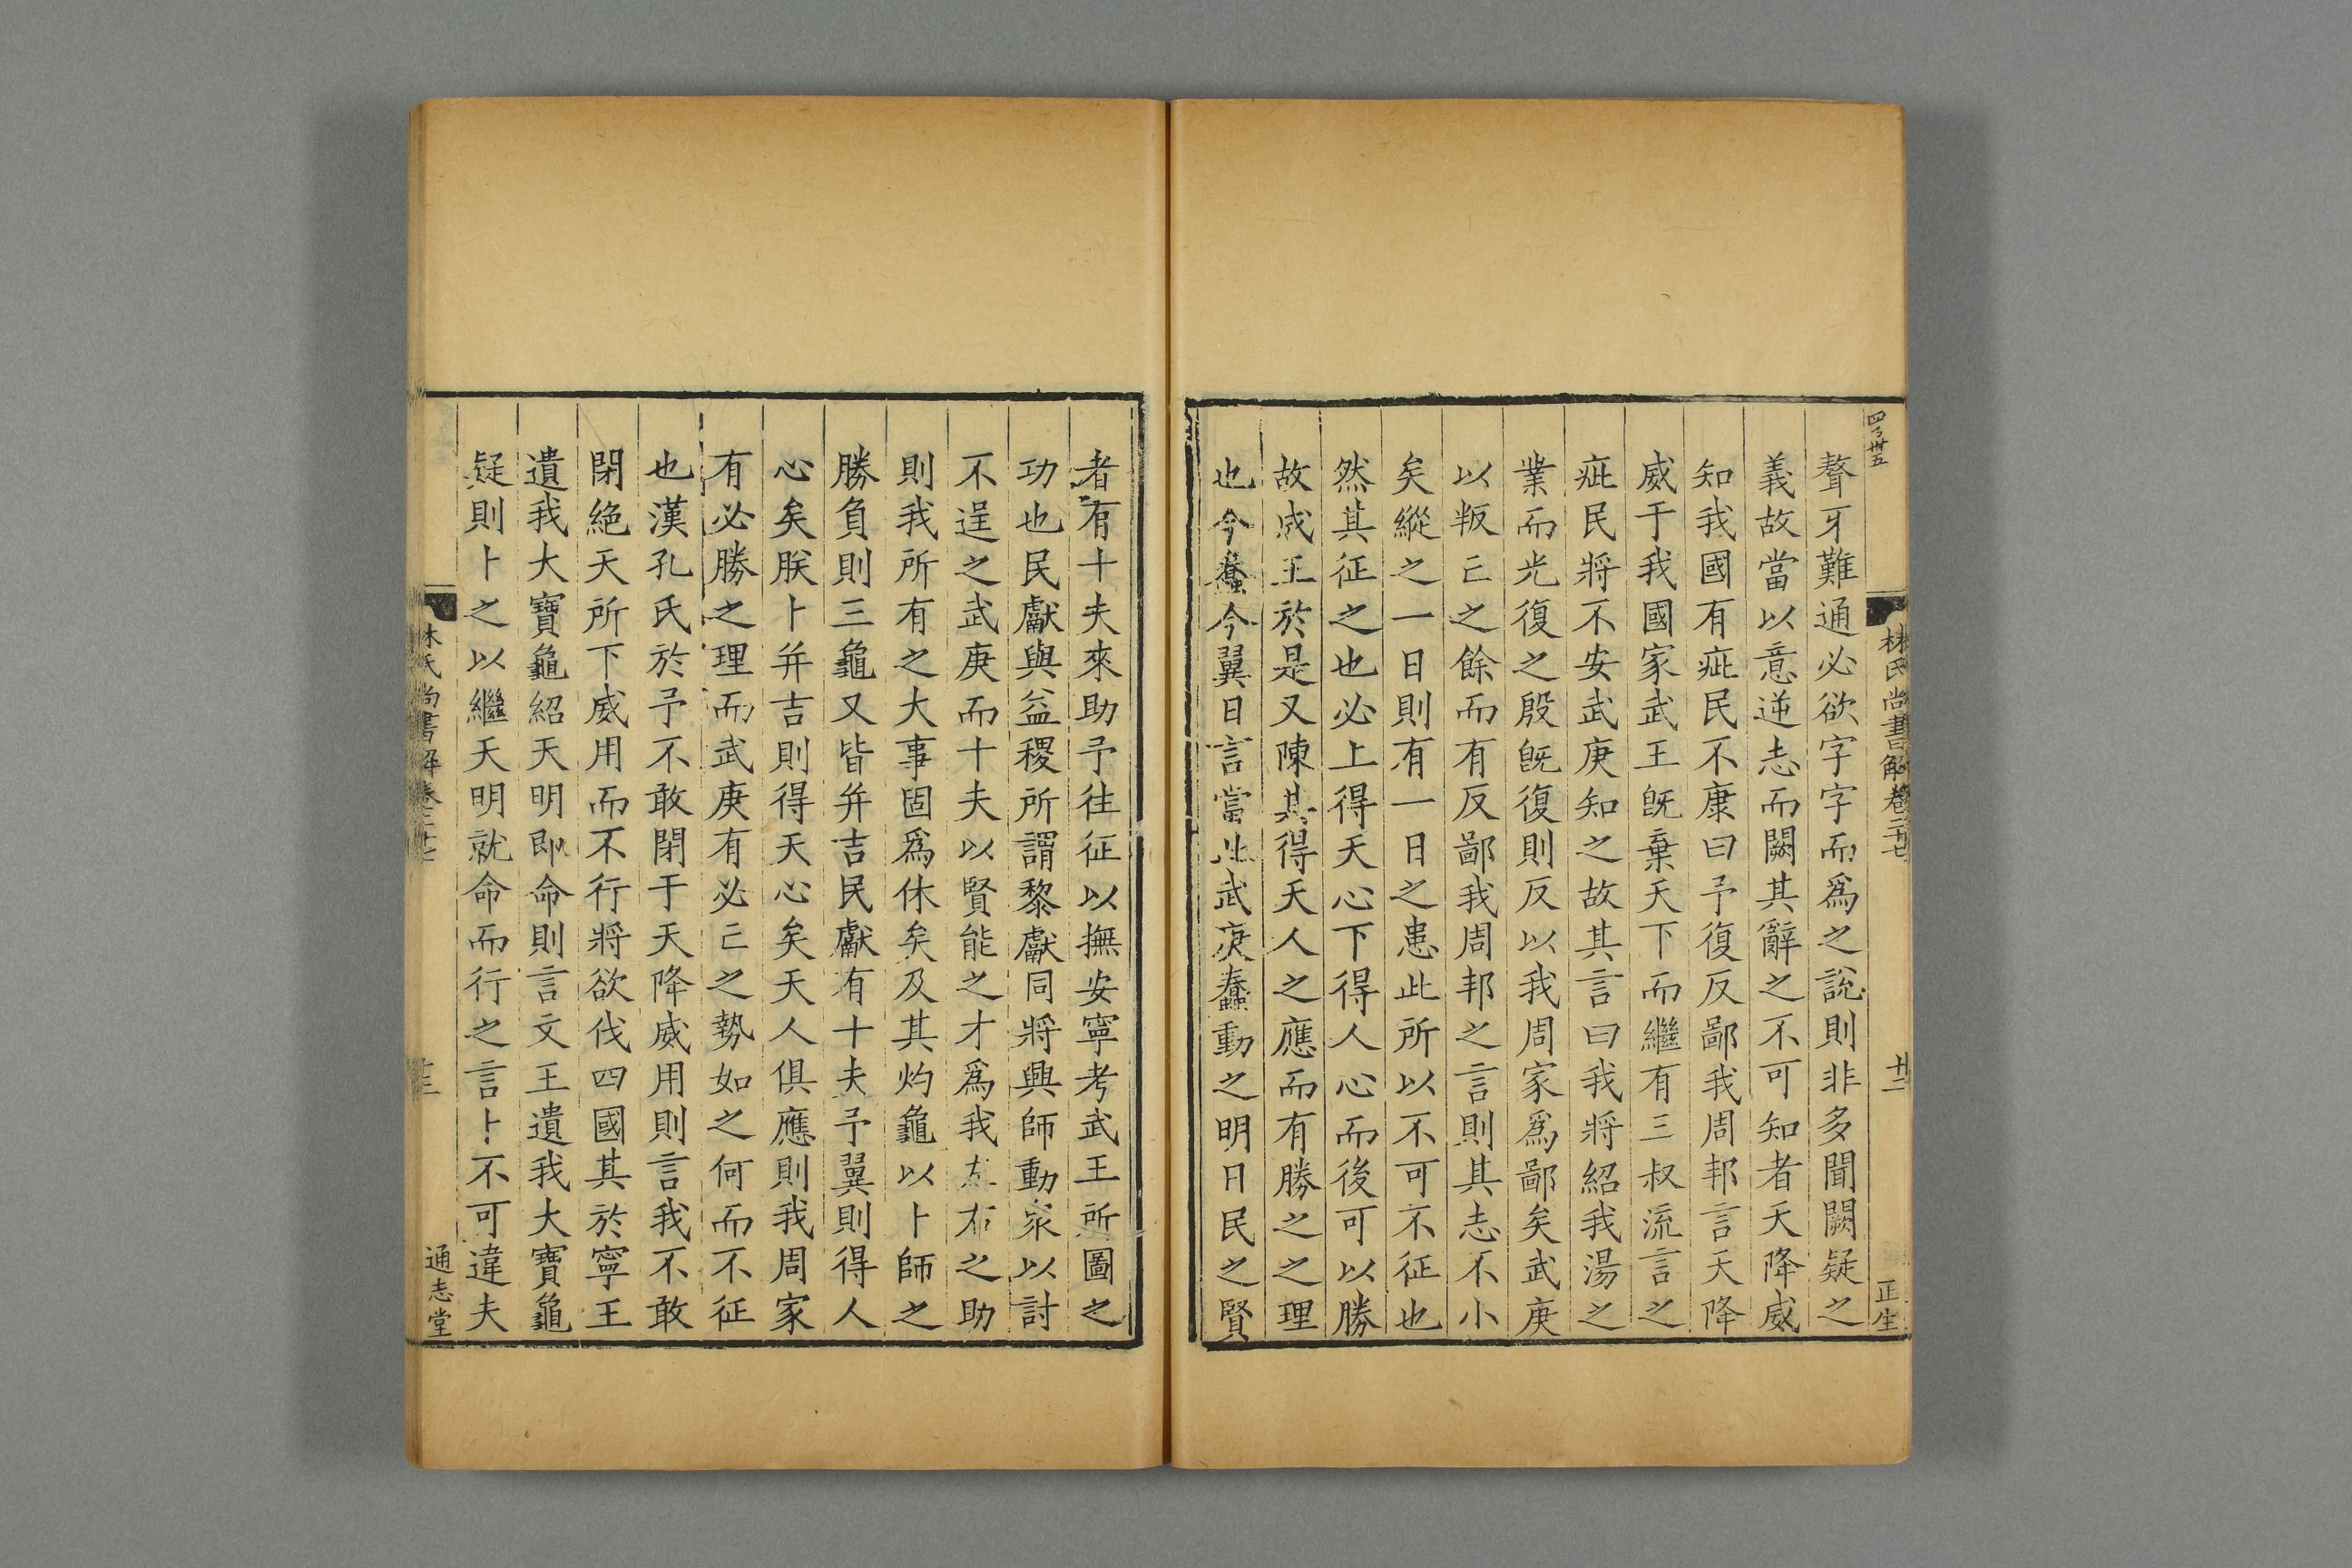 林氏尚書解卷二十七
十二
正生
聱牙難通必欲字字而爲之說則非多聞闕疑之
義故當以意逆志而闕其辭之不可知者天降威
知我國有疵民不康曰予復反鄙我周邦言天降
威于我國家武王旣棄天下而繼有三叔流言之
疵民將不安武庚知之故其言曰我將紹我湯之
業而光復之殷旣復則反以我周家爲鄙矣武庚
以叛亡之餘而有反鄙我周邦之言則其志不小
矣縱之一日則有一日之患此所以不可不征也
然其征之也必上得天心下得人心而後可以勝
故成王於是又陳其得天人之應而有勝之之理
也今蠢今翼日言當此武庚蠢動之明日民之賢
者有十夫來助予往征以撫安寧考武王所圖之
功也民獻與益稷所謂黎獻同將興師動衆以討
不逞之武庚而十夫以賢能之才爲我左右之助
則我所有之大事固爲休矣及其灼龜以卜師之
勝負則三龜又皆并吉民獻有十夫予翼則得人
心矣朕卜并吉則得天心矣天人俱應則我周家
有必勝之理而武庚有必亡之勢如之何而不征
也漢孔氏於予不敢閉于天降威用則言我不敢
閉絕天所下威用而不行將欲伐四國其於寧王
遺我大寶龜紹天明即命則言文王遺我大寶龜
疑則卜之以繼天明就命而行之言卜不可違夫
林氏尚書解卷二十七
十三
通志堂